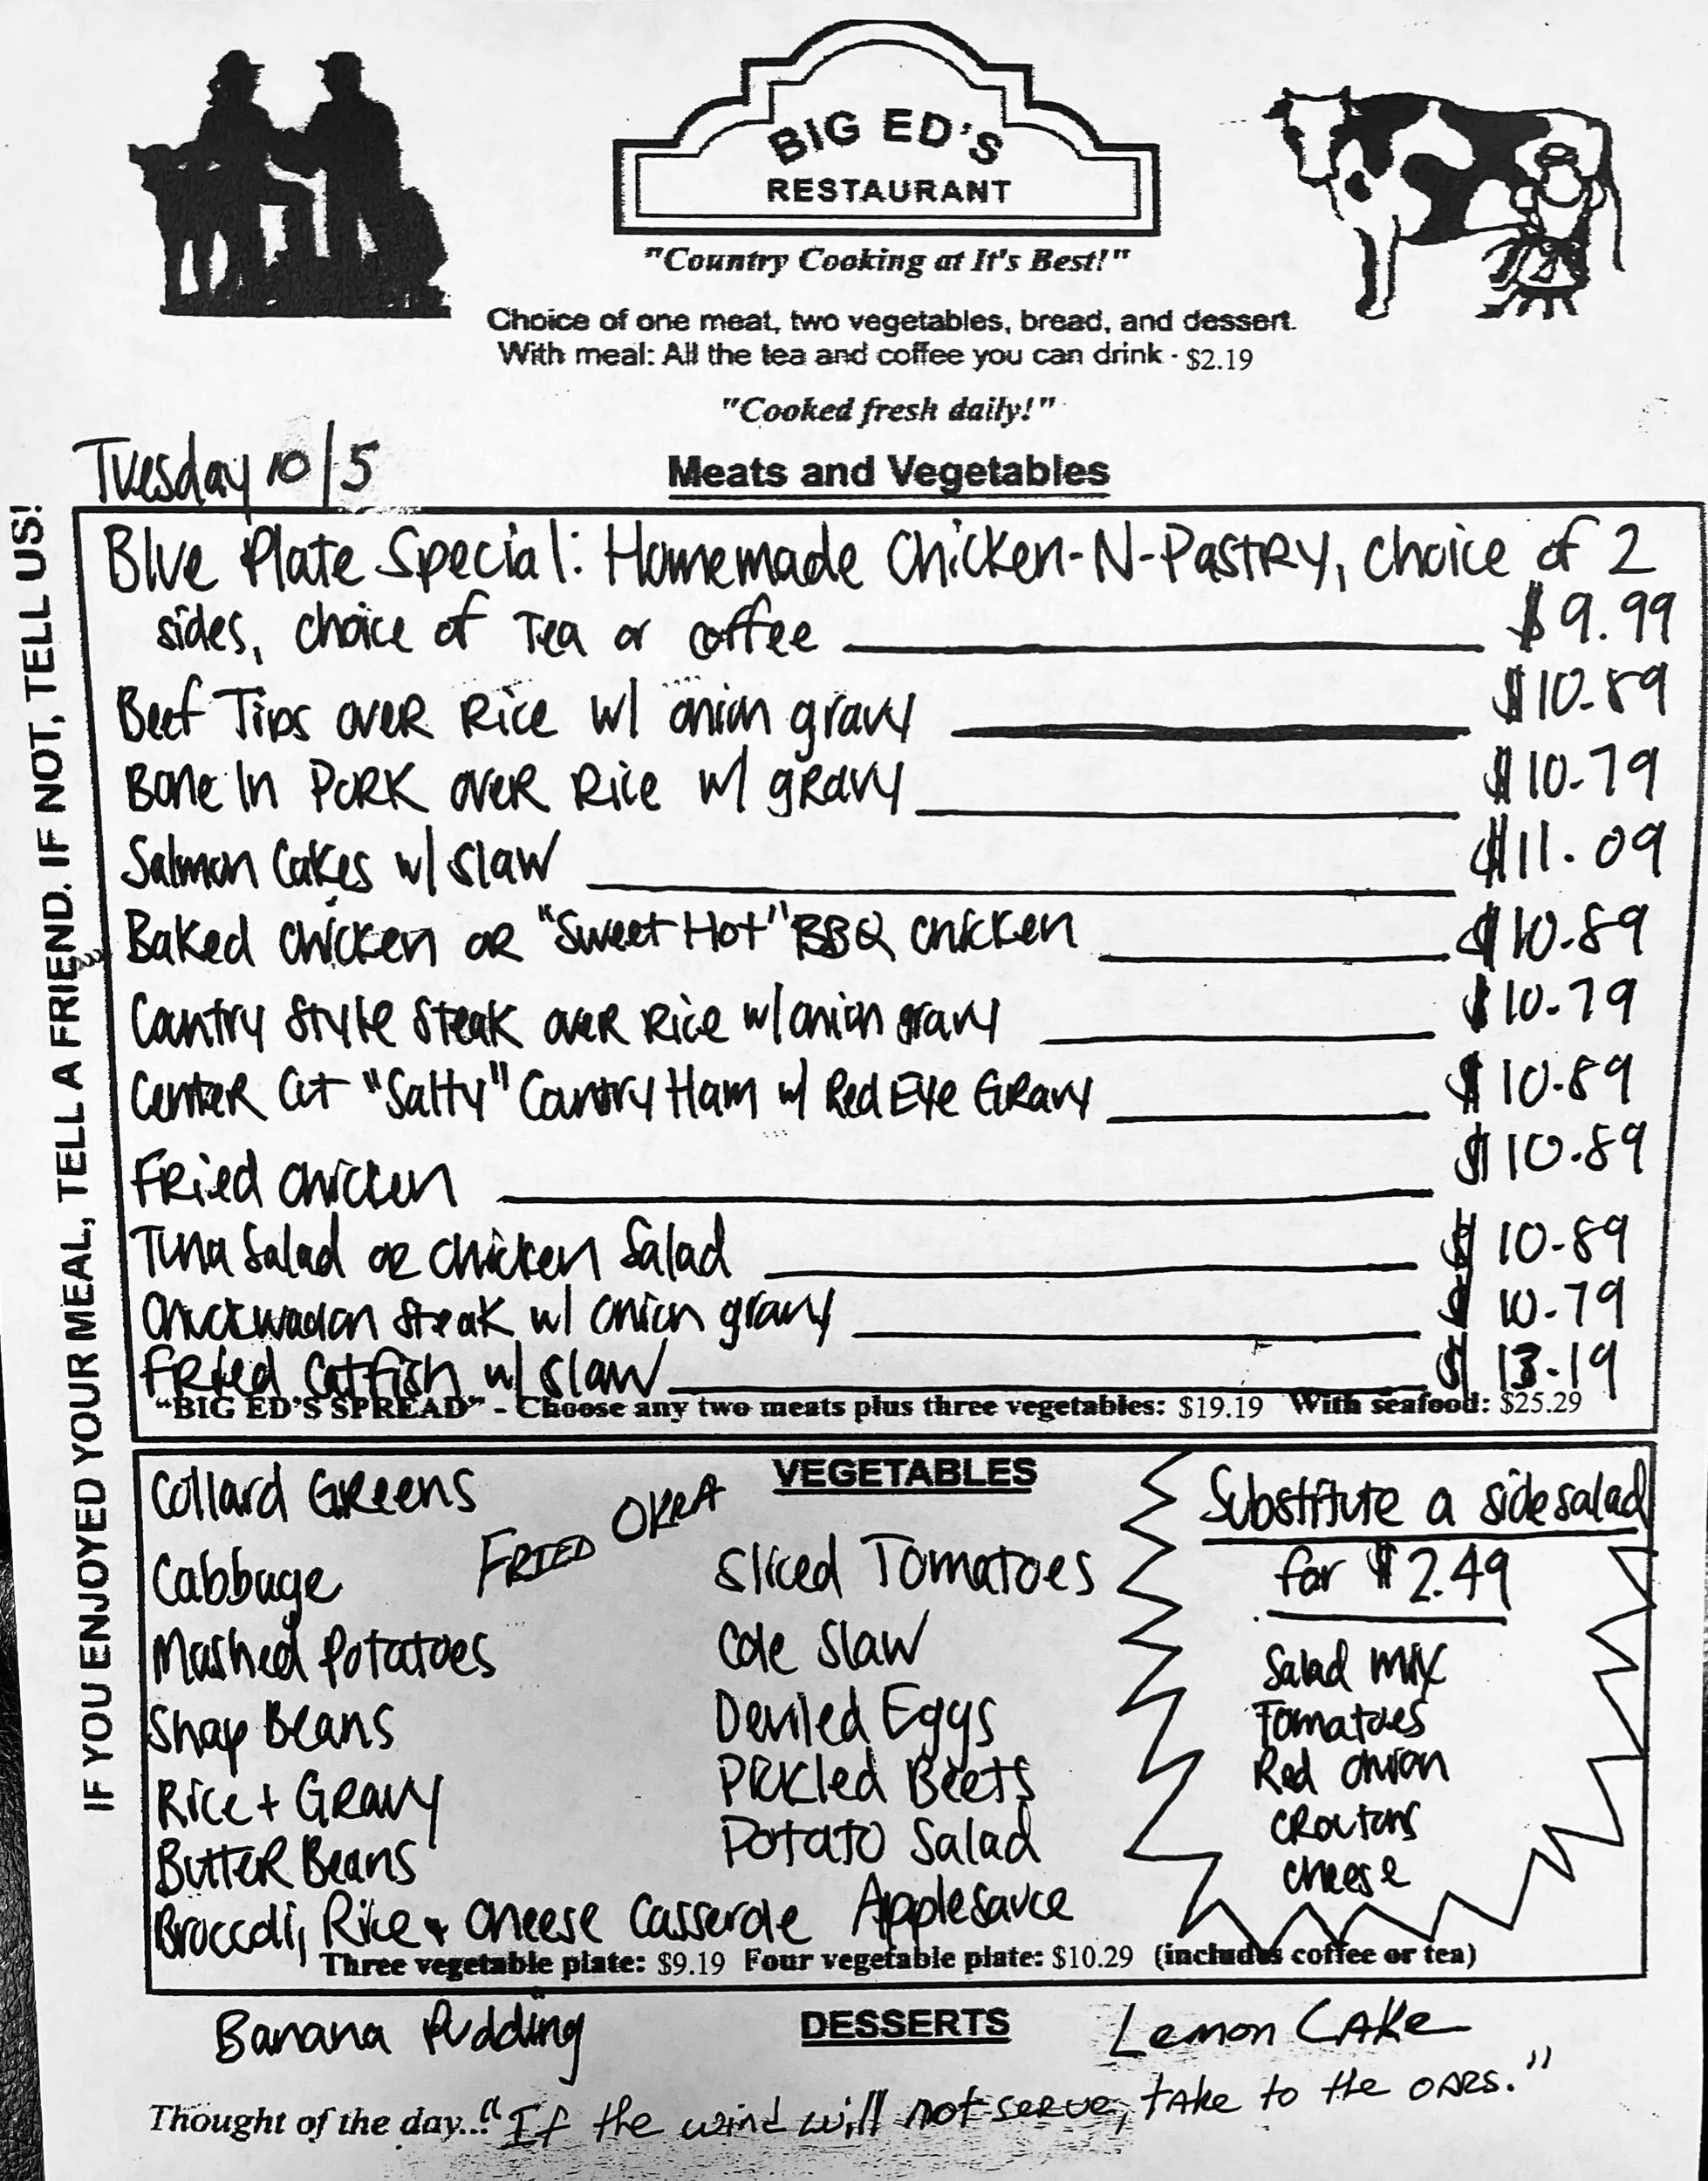 BIG ED'S
RESTAURANT
"Country Cooking at It's Best!"
Choice of one meat, two vegetables, bread, and dessert.
With meal: All the tea and coffee you can drink - $2.19
"Cooked fresh daily!"
Tuesday 10/5
Meats and Vegetables
IF YOU ENJOYED YOUR MEAL, TELL A FRIEND. IF NOT, TELL US!
Blue Plate Special: Homemade Chicken-N-Pastry, choice of 2
sides, choice of Tea or coffee $9.99
Beef Tips over Rice w/ onion gravy $10.89
Bone In Pork over Rice w/ gravy $10.79
Salmon Cakes w/ slaw $11.09
Baked chicken or "Sweet Hot" BBQ chicken $10.89
Country Style Steak over Rice w/ onion gravy $10.79
Center Cut "Salty" Country Ham w/ Red Eye Gravy $10.89
Fried chicken $10.89
Tuna Salad or chicken Salad $10.89
Chuckwagon Steak w/ onion gravy $10.79
Fried Catfish w/ slaw $13.19
"BIG ED'S SPREAD" - Choose any two meats plus three vegetables: $19.19 With seafood: $25.29
VEGETABLES
Collard Greens
FRIED OKRA
Cabbage
Mashed Potatoes
Snap Beans
Rice + Gravy
Butter Beans
Broccoli, Rice + Cheese Casserole
Sliced Tomatoes
Cole Slaw
Deviled Eggs
Pickled Beets
Potato Salad
Applesauce
Substitute a side salad
for $2.49
Salad mix
Tomatoes
Red onion
croutons
cheese
Three vegetable plate: $9.19 Four vegetable plate: $10.29 (includes coffee or tea)
DESSERTS
Banana Pudding
Lemon Cake
Thought of the day..."If the wind will not serve, take to the oars."